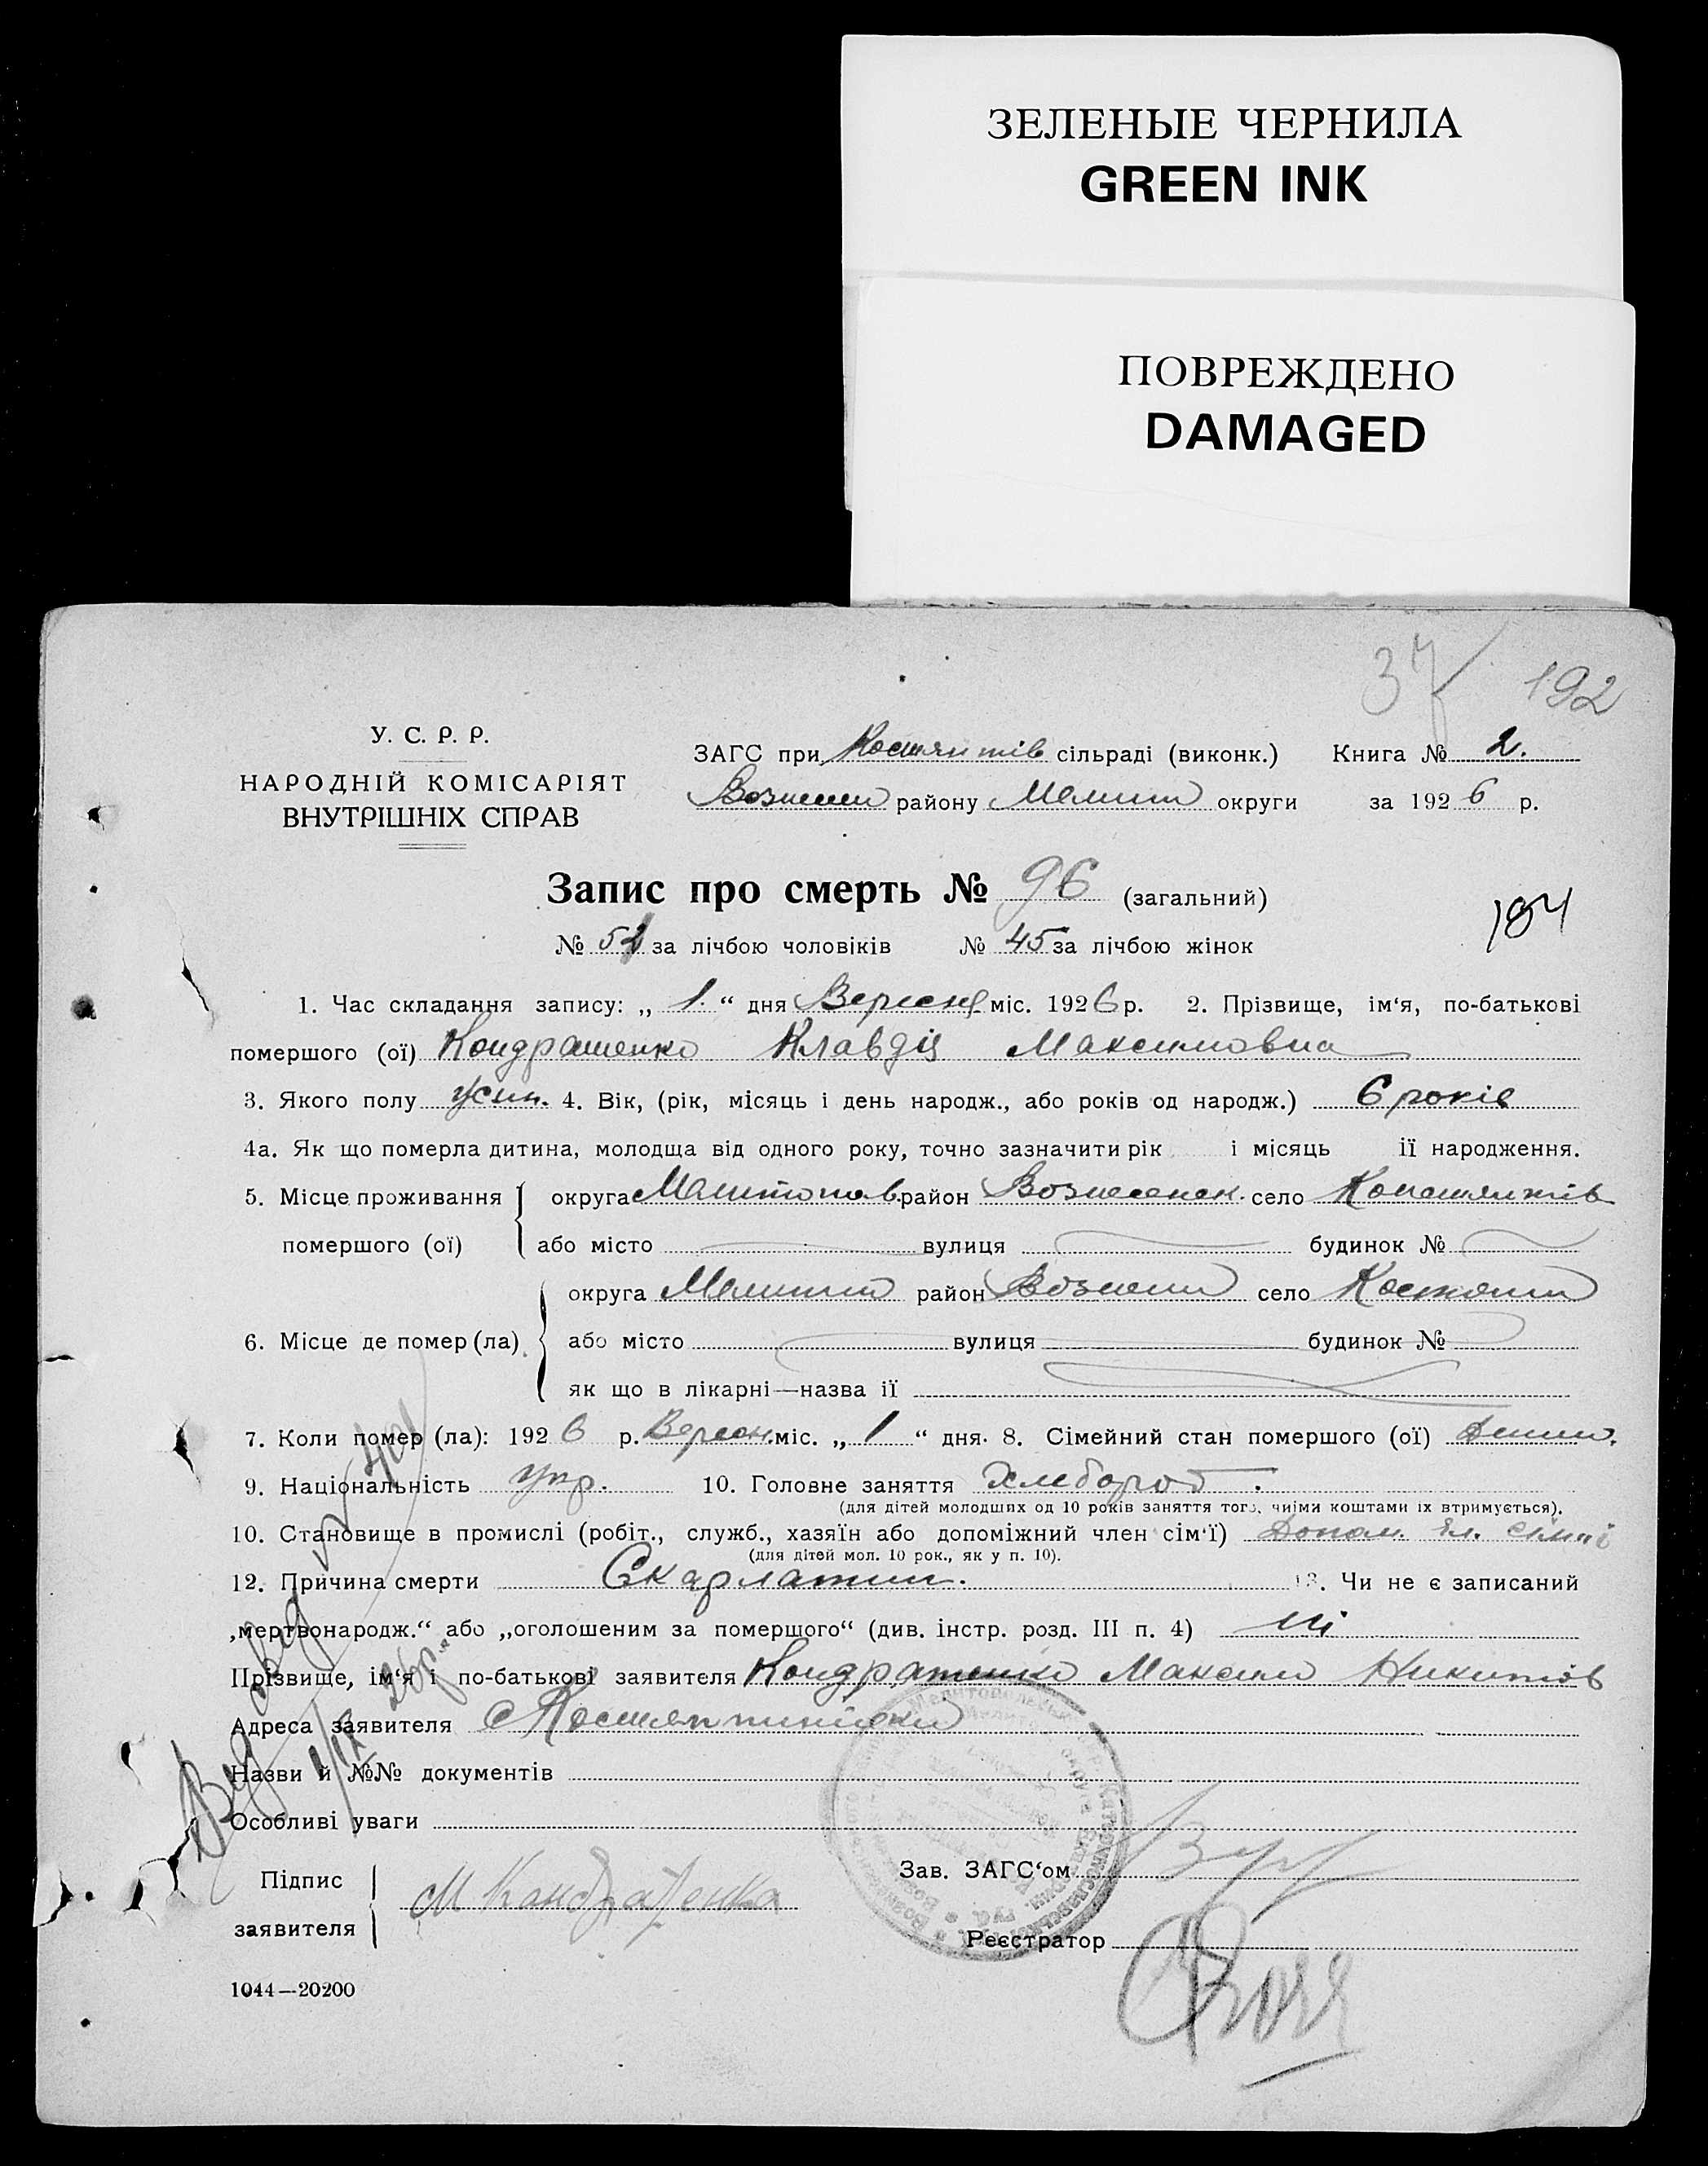 ЗЕЛЕНЫЕ ЧЕРНИЛА
GREEN INK
ПОВРЕЖДЕНО
DAMAGED
37 192
У. С. Р. Р.
НАРОДНІЙ КОМІСАРІЯТ
ВНУТРІШНІХ СПРАВ
ЗАГС при сільраді (виконк.) Книга № 2.
району округи за 1926 р.
Запис про смерть № 96 (загальний)
184
№ за лічбою чоловіків № 45 за лічбою жінок
1. Час складання запису: „ 1. “ дня Вересня міс. 1926 р. 2. Прізвище, ім‘я, по-батькові
помершого (ої) Кондратенко Клавдія Максимовна
3. Якого полу жін. 4. Вік, (рік, місяць і день народж., або років од народж.) 6 років
4а. Як що померла дитина, молодща від одного року, точно зазначити рік і місяць її народження.
5. Місце проживання округа Мелитопов. район Вознесенск. село Констянтів
помершого (ої) або місто вулиця будинок №
округа район село
6. Місце де помер (ла) або місто вулиця будинок №
як що в лікарні—назва її
7. Коли помер (ла): 1926 р. Вересн. міс. „ 1 “ дня. 8. Сімейний стан помершого (ої)
9. Національність Укр. 10. Головне заняття Хлебороб.
(для дітей молодших од 10 років заняття того, чиїми коштами їх втримується).
10. Становище в промислі (робіт., служб., хазяїн або допоміжний член сім‘ї) Допом. чл. сімьї
(для дітей мол. 10 рок., як у п. 10).
12. Причина смерти Скарлатин. 13. Чи не є записаний
„мертвонародж.“ або „оголошеним за помершого“ (див. інстр. розд. III п. 4) ні
Прізвище, ім‘я і по-батькові заявителя Кондратенко Максим Никитов
Адреса заявителя с Костянтинівки
Назви й №№ документів
Особливі уваги
Підпис
заявителя М Кондратенко
Зав. ЗАГС‘ом
Реєстратор
1044—20200